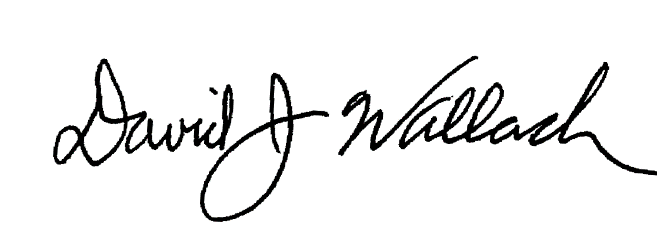 David J Wallach